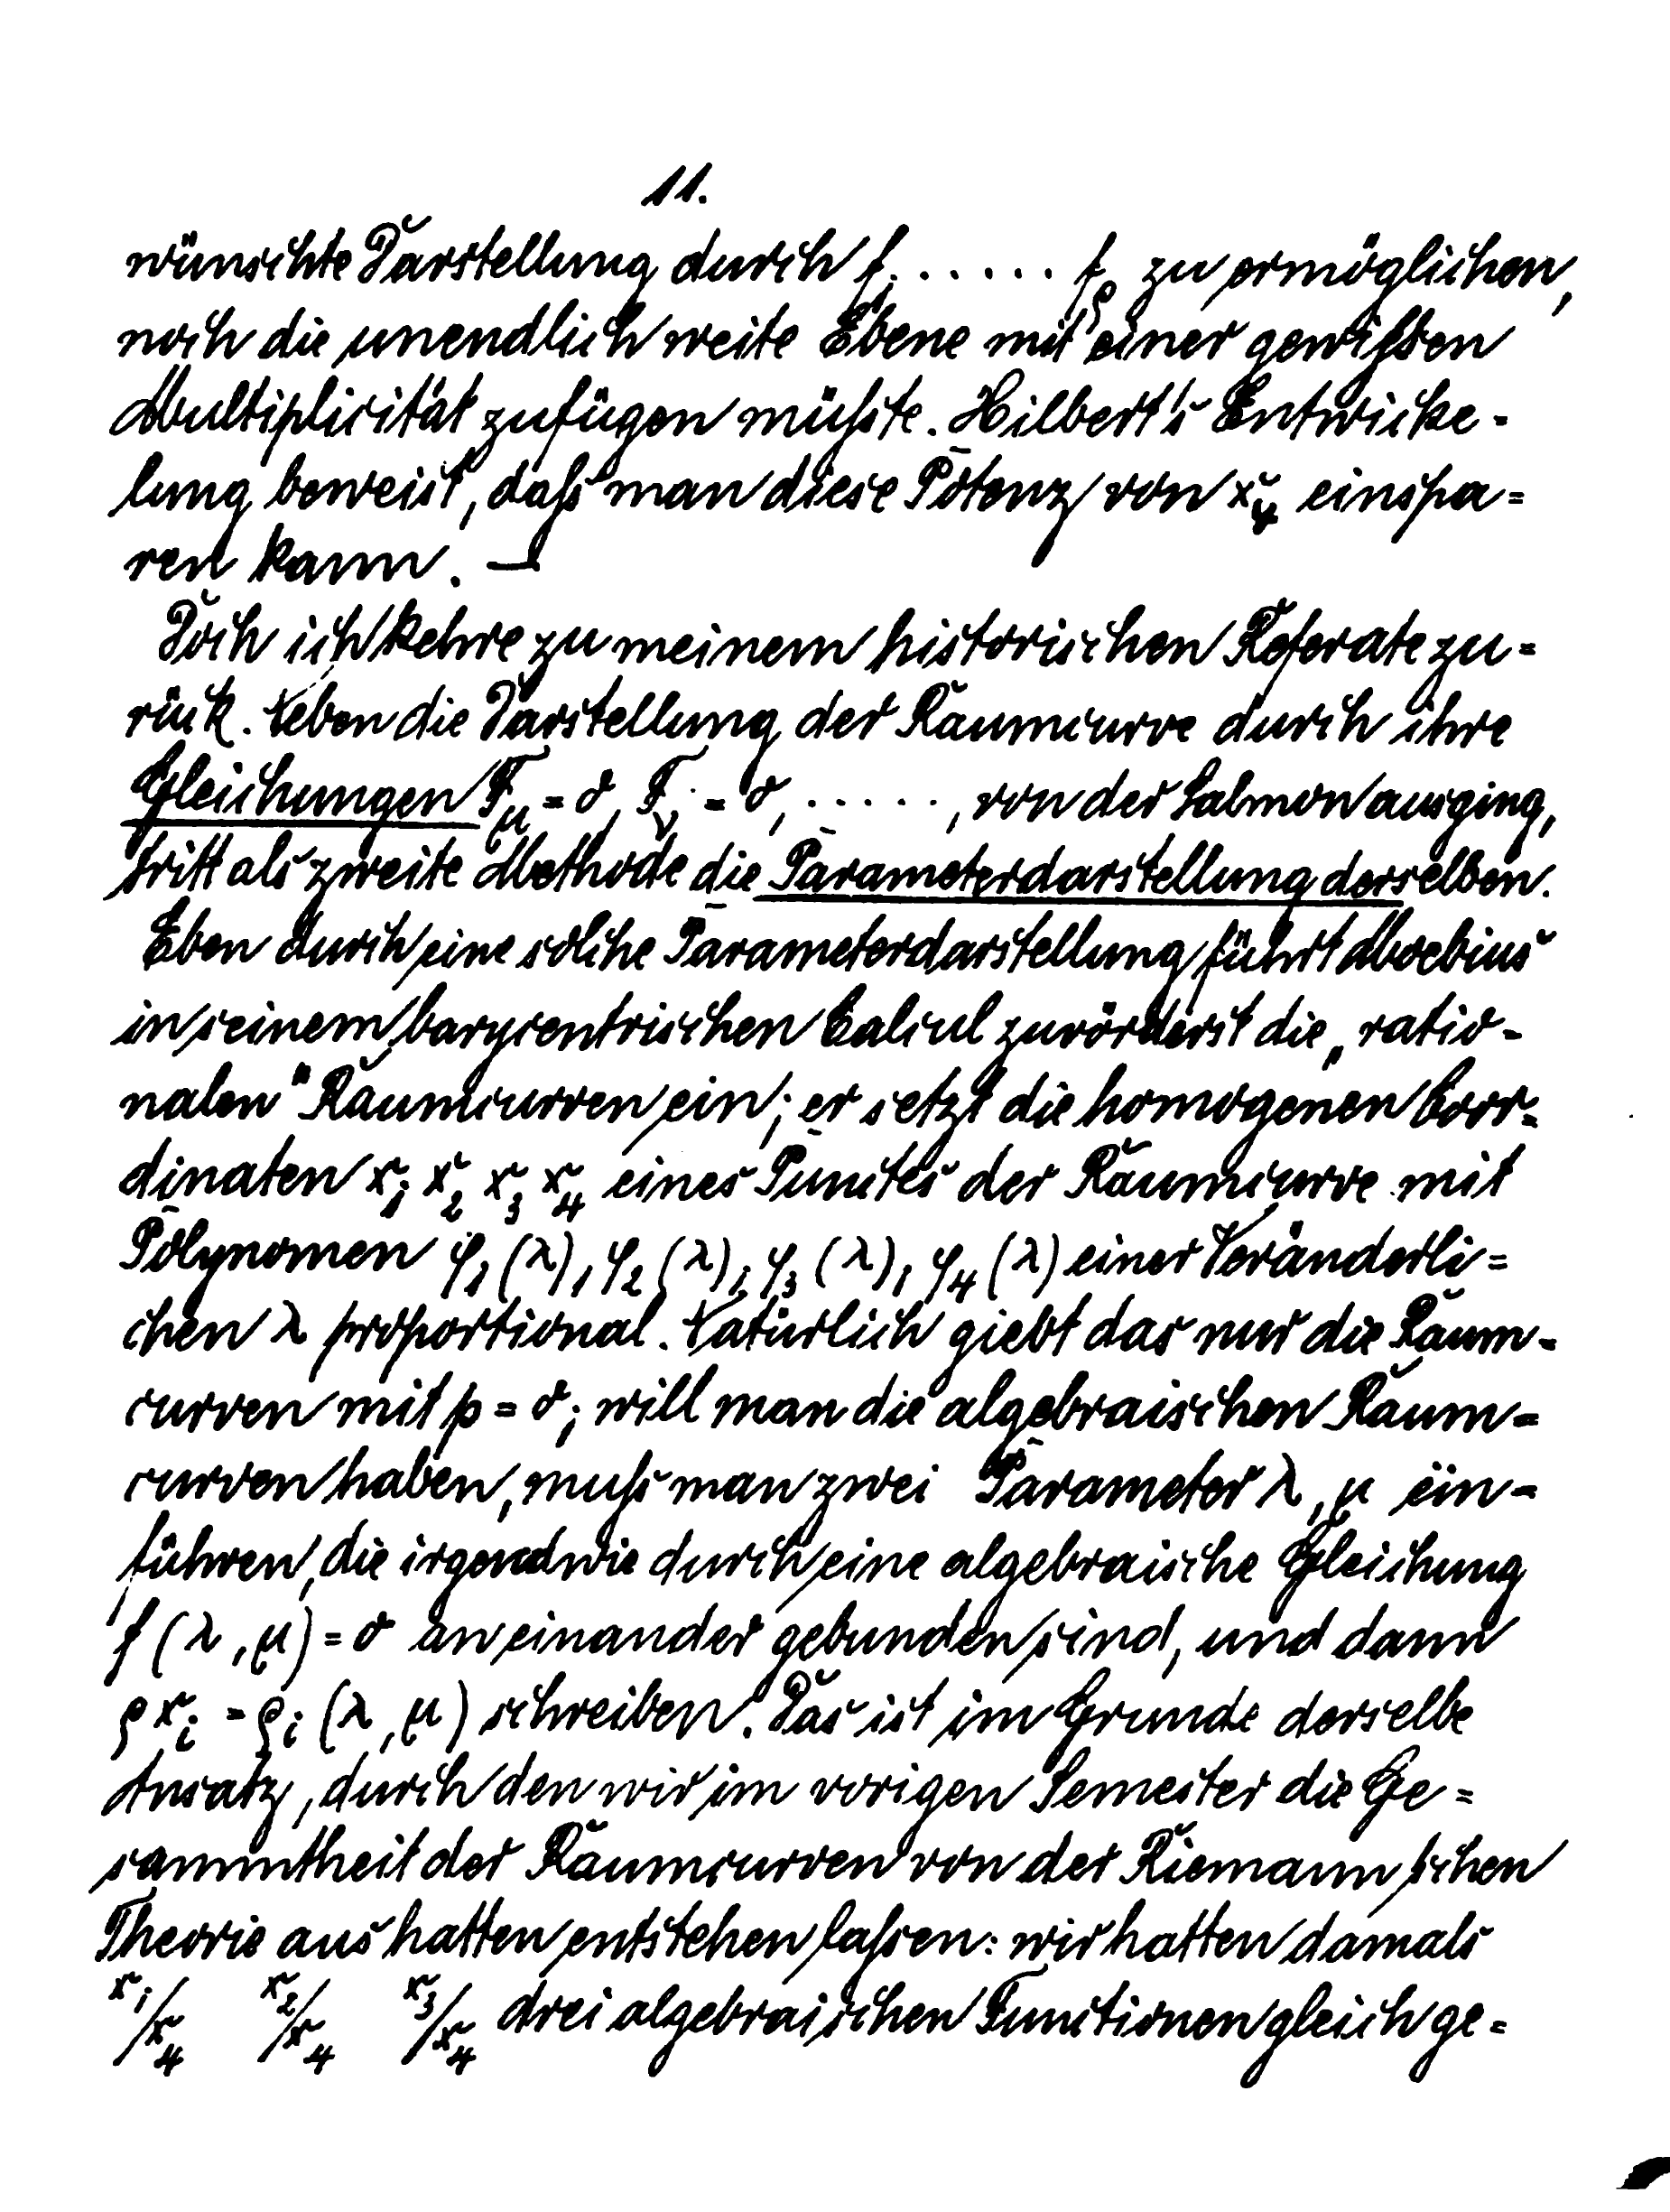 11.
wünschte Darstellung durch f₁ . . . . . f_ρ zu ermöglichen,
noch die unendlich weite Ebene mit einer gewißen
Multiplicität zufügen müßte. Hilbert's Entwicke-
lung beweist, daß man diese Potenz von x₄ einspa=
ren kann. —
Doch ich kehre zu meinem historischen Referate zu=
rück. Neben die Darstellung der Raumcurve durch ihre
Gleichungen F_μ = 0, F_ν = 0, . . . . . , von der Salmon ausging,
tritt als zweite Methode die Parameterdarstellung derselben.
Eben durch eine solche Parameterdarstellung führt Moebius
in seinem barycentrischen Calcul zuvörderst die „ratio-
nalen" Raumcurven ein; er setzt die homogenen Coor=
dinaten x₁ x₂ x₃ x₄ eines Punctes der Raumcurve mit
Polynomen φ₁(λ), φ₂(λ), φ₃(λ), φ₄(λ) einer Veränderli=
chen λ proportional. Natürlich giebt das nur die Raum-
curven mit p = 0; will man die algebraischen Raum=
curven haben, muß man zwei Parameter λ, μ ein=
führen, die irgendwie durch eine algebraische Gleichung
f(λ, μ) = 0 aneinander gebunden sind, und dann
ρxᵢ = φᵢ(λ, μ) schreiben. Das ist im Grunde derselbe
Ansatz, durch den wir im vorigen Semester die Ge=
sammtheit der Raumcurven von der Riemann'schen
Theorie aus hatten entstehen laßen: wir hatten damals
x₁/x₄ x₂/x₄ x₃/x₄ drei algebraischen Functionen gleich ge=